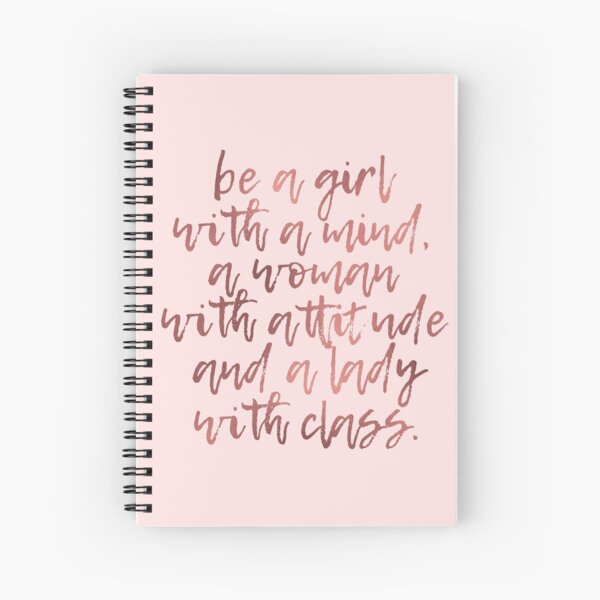 be a girl
with a mind,
a woman
with attitude
and a lady
with class.